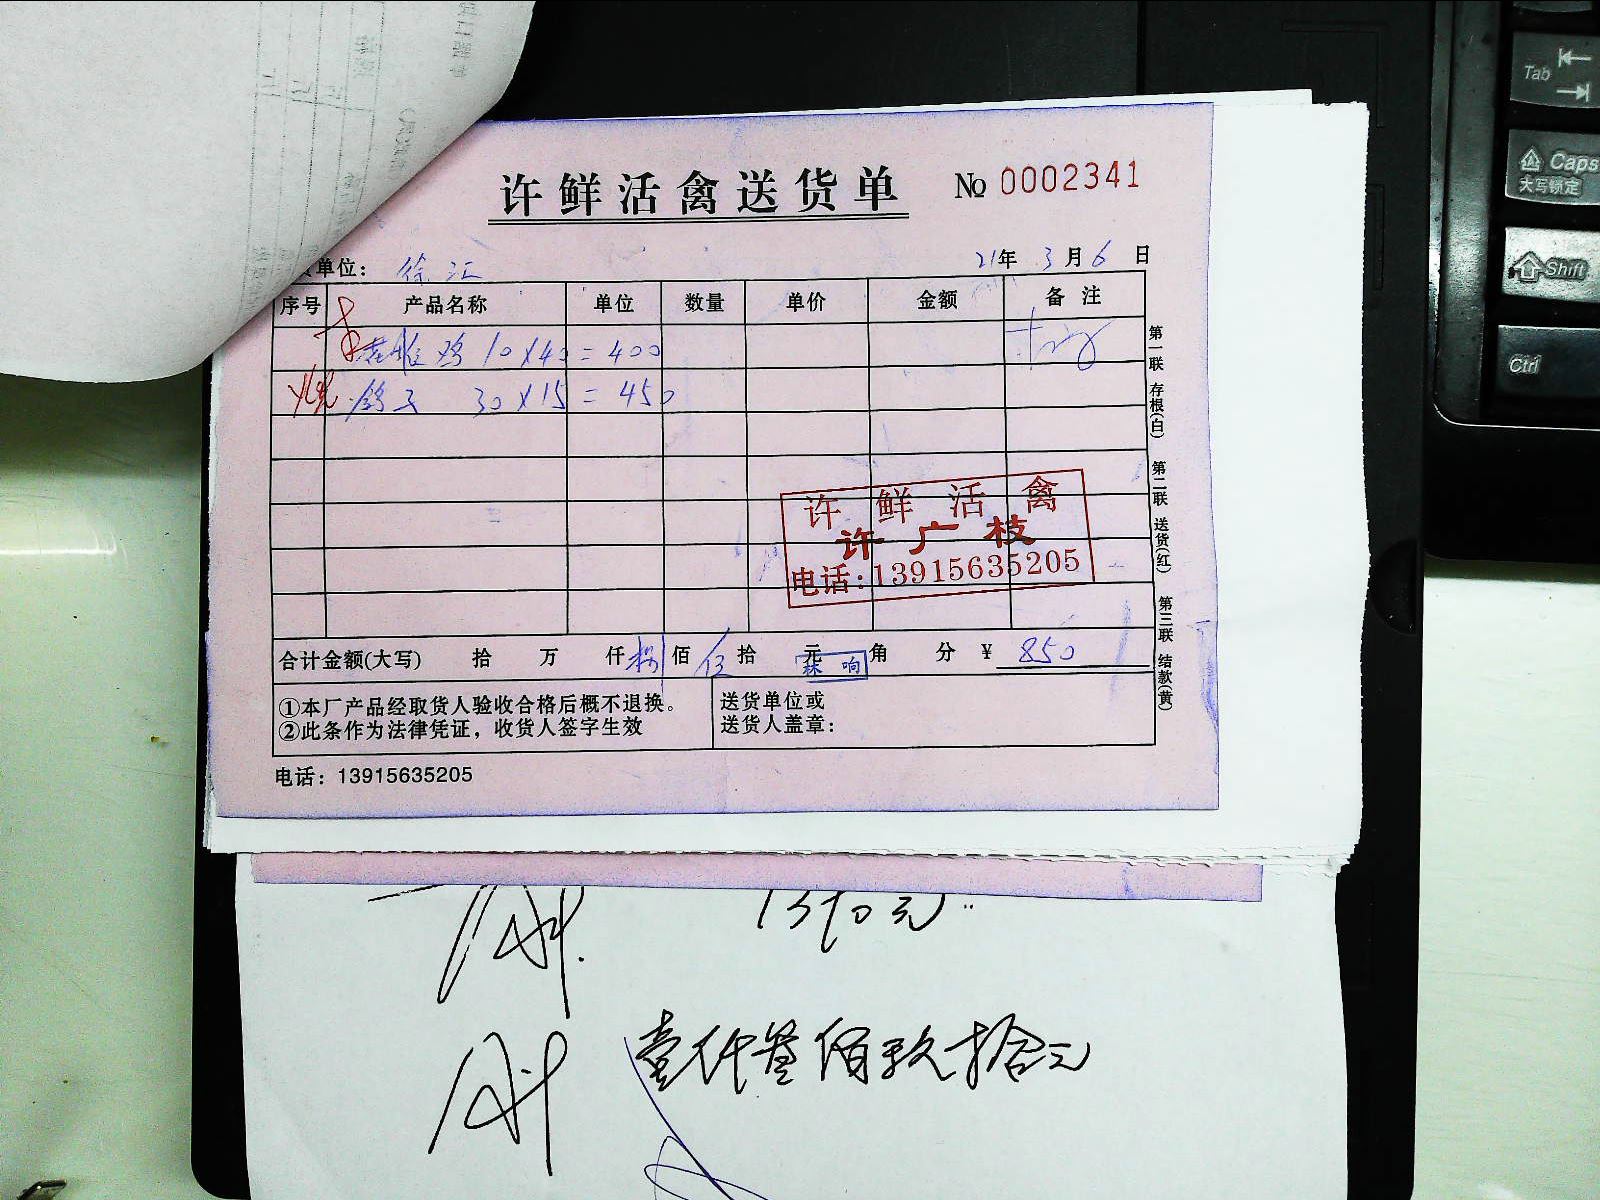 许鲜活禽送货单 № 0002341
单位： 徐汇 21年 3月 6日
序号 产品名称 单位 数量 单价 金额 备注
鸡 10×40=400
鸽子 30×15=450
许鲜活禽
许广枝
电话:13915635205
合计金额(大写) 拾 万 仟 捌 佰 伍 拾 元 角 分 ¥ 850
林响
①本厂产品经取货人验收合格后概不退换。
②此条作为法律凭证，收货人签字生效
送货单位或
送货人盖章：
电话：13915635205
第一联 存根(白)
第二联 送货(红)
第三联 结款(黄)
1390元
壹仟叁佰玖拾元
Tab
Caps
大写锁定
Shift
Ctrl